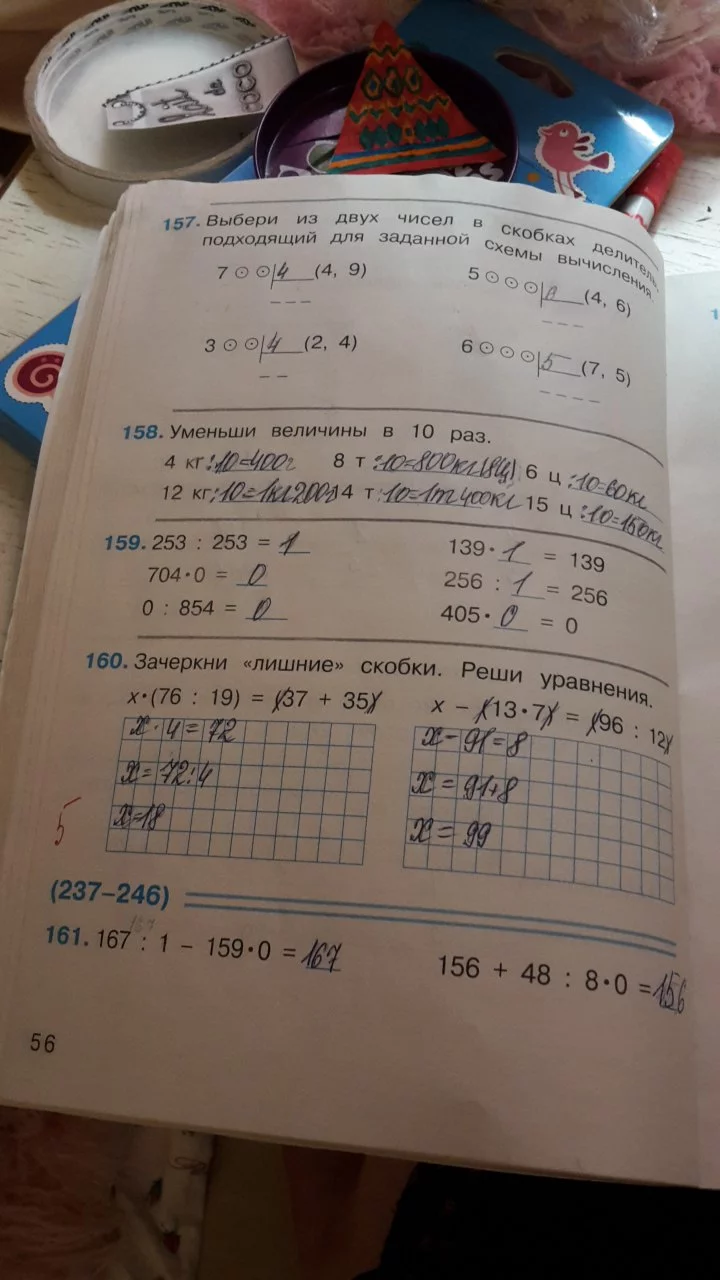 157. Выбери из двух чисел в скобках делитель,
подходящий для заданной схемы вычисления.
7 ⊙ ⊙ 4 (4, 9)
5 ⊙ ⊙ ⊙ (4, 6)
3 ⊙ ⊙ 4 (2, 4)
6 ⊙ ⊙ ⊙ 5 (7, 5)
158. Уменьши величины в 10 раз.
4 кг :10=400г 8 т :10=800кг(8ц) 6 ц :10=60кг
12 кг :10=1кг200г 14 т :10=1т400кг 15 ц :10=150кг
159. 253 : 253 = 1
139 · 1 = 139
704 · 0 = 0
256 : 1 = 256
0 : 854 = 0
405 · 0 = 0
160. Зачеркни «лишние» скобки. Реши уравнения.
x · (76 : 19) = (37 + 35)
x · 4 = 72
x = 72:4
x=18
x − (13 · 7) = (96 : 12)
x − 91 = 8
x = 91+8
x = 99
5
(237–246)
161. 167 : 1 − 159 · 0 = 167
156 + 48 : 8 · 0 = 156
56